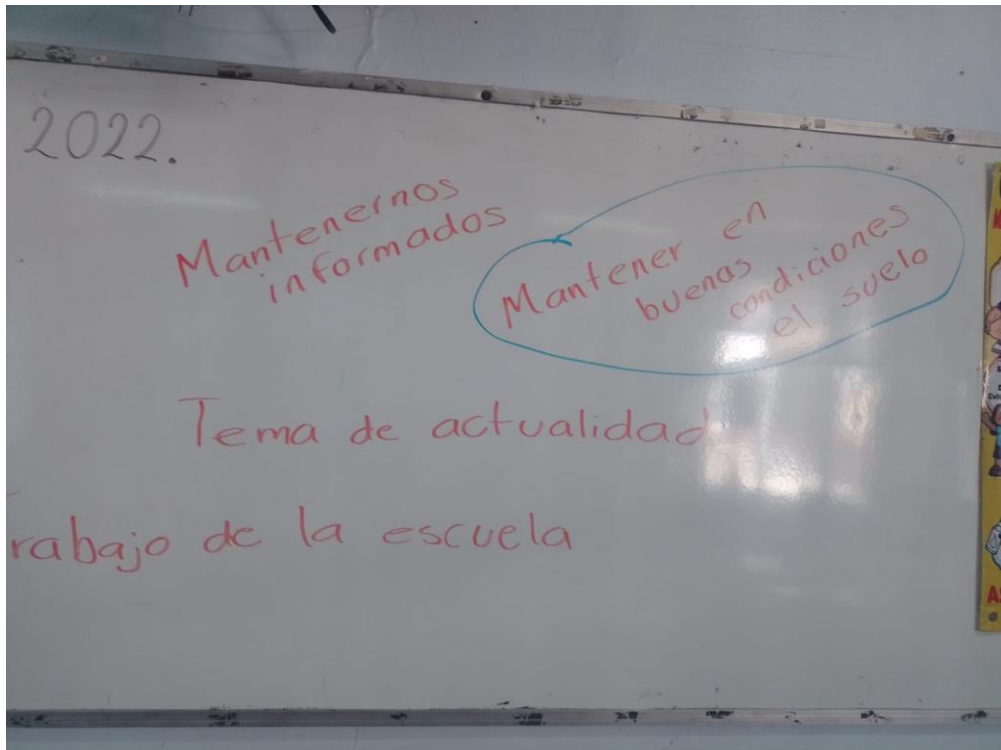 2022.
Mantenernos
informados
Mantener en
buenas
condiciones
el suelo
Tema de actualidad
rabajo de la escuela